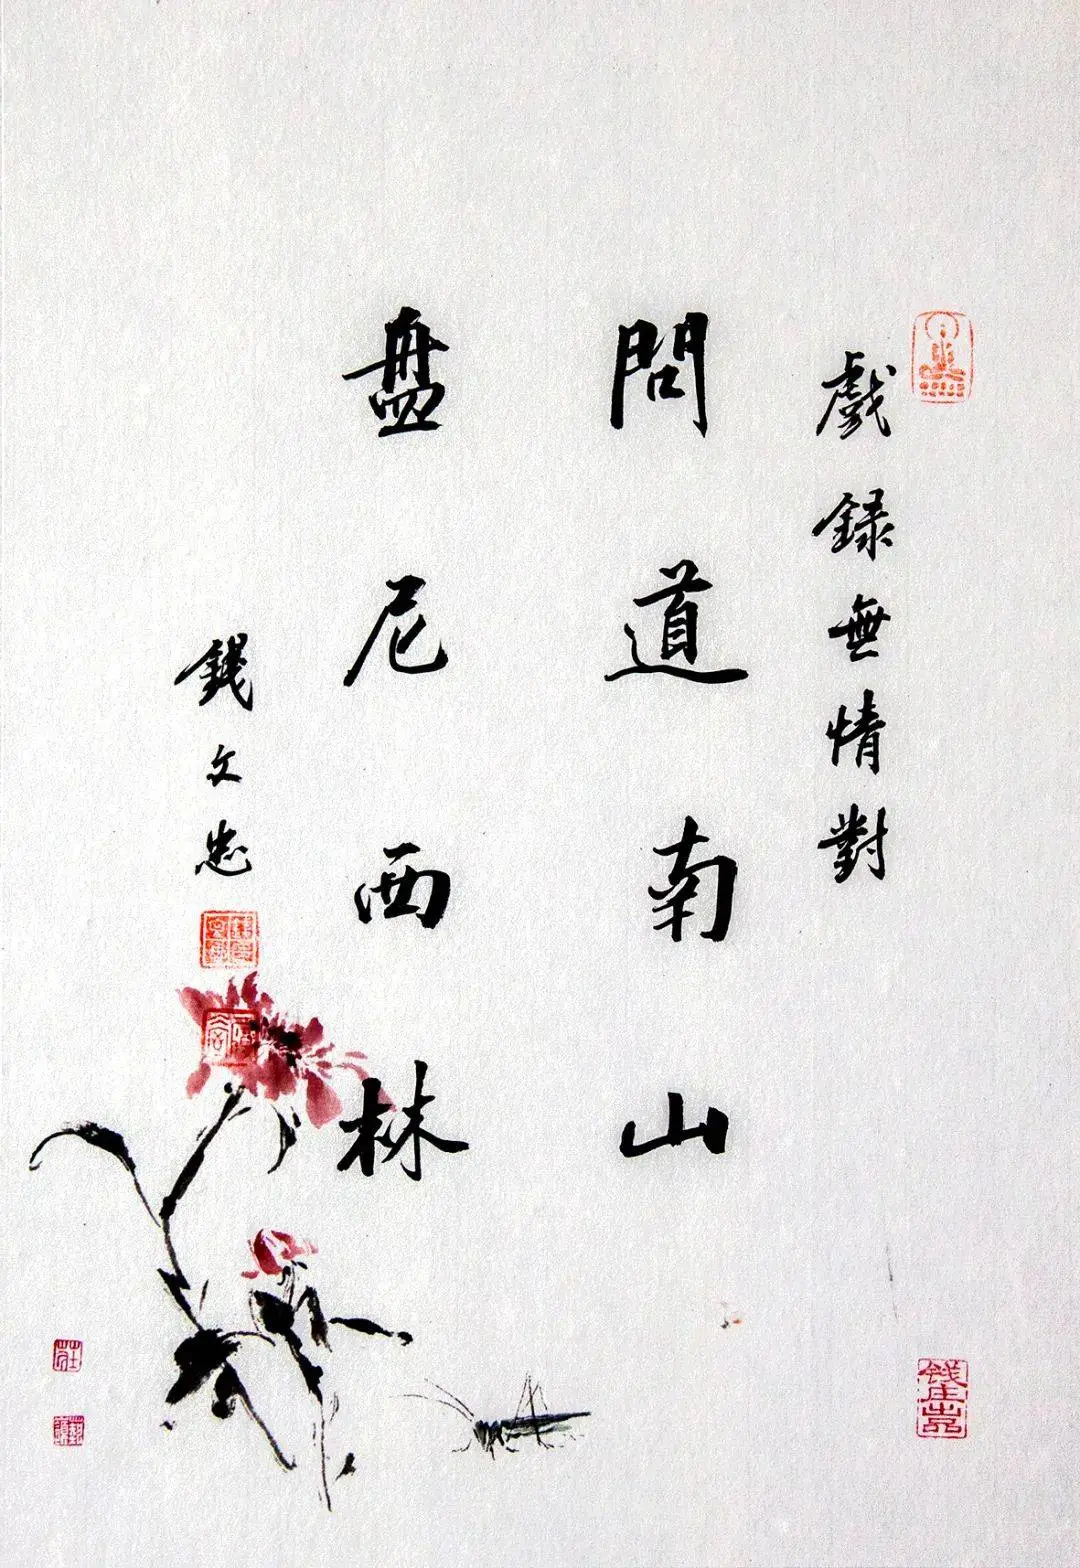 戲録無情對
問道南山
盤尼西林
錢文忠